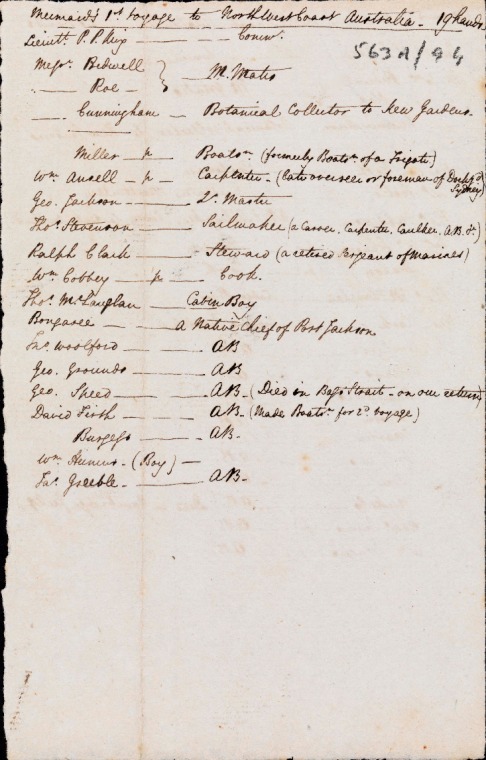 Mermaid's 1st Voyage to North West Coast Australia - 19 hands
Lieutt. P. P. King — Comr.
563A/94
Messrs. Bedwell } M. Mates
— Roe —
— Cunningham — Botanical Collector to Kew Gardens.
Miller — Boatsn. (formerly Boatsn. of a Frigate)
Wm. Ansell — Carpenter - (late overseer or foreman of Dockyd Sydney)
Geo. Jackson — Qr. Master
Thos. Stevenson — Sailmaker (a Cooper, Carpenter, Caulker, AB. &c)
Ralph Clark — Steward (a retired Sergeant of Marines)
Wm. Cobbey — Cook.
Thos. McLauglan — Cabin Boy
Bongaree — a Native Chief of Port Jackson
Jas. Woolford — AB
Geo. Grounds — AB
Geo. Speed — AB. (Died in Bass's Strait - on our return)
David Frith — AB. (Made Boatsn. for 2d. Voyage)
Burgess — AB.
Wm. (Boy) —
Jas. Greeble — AB.